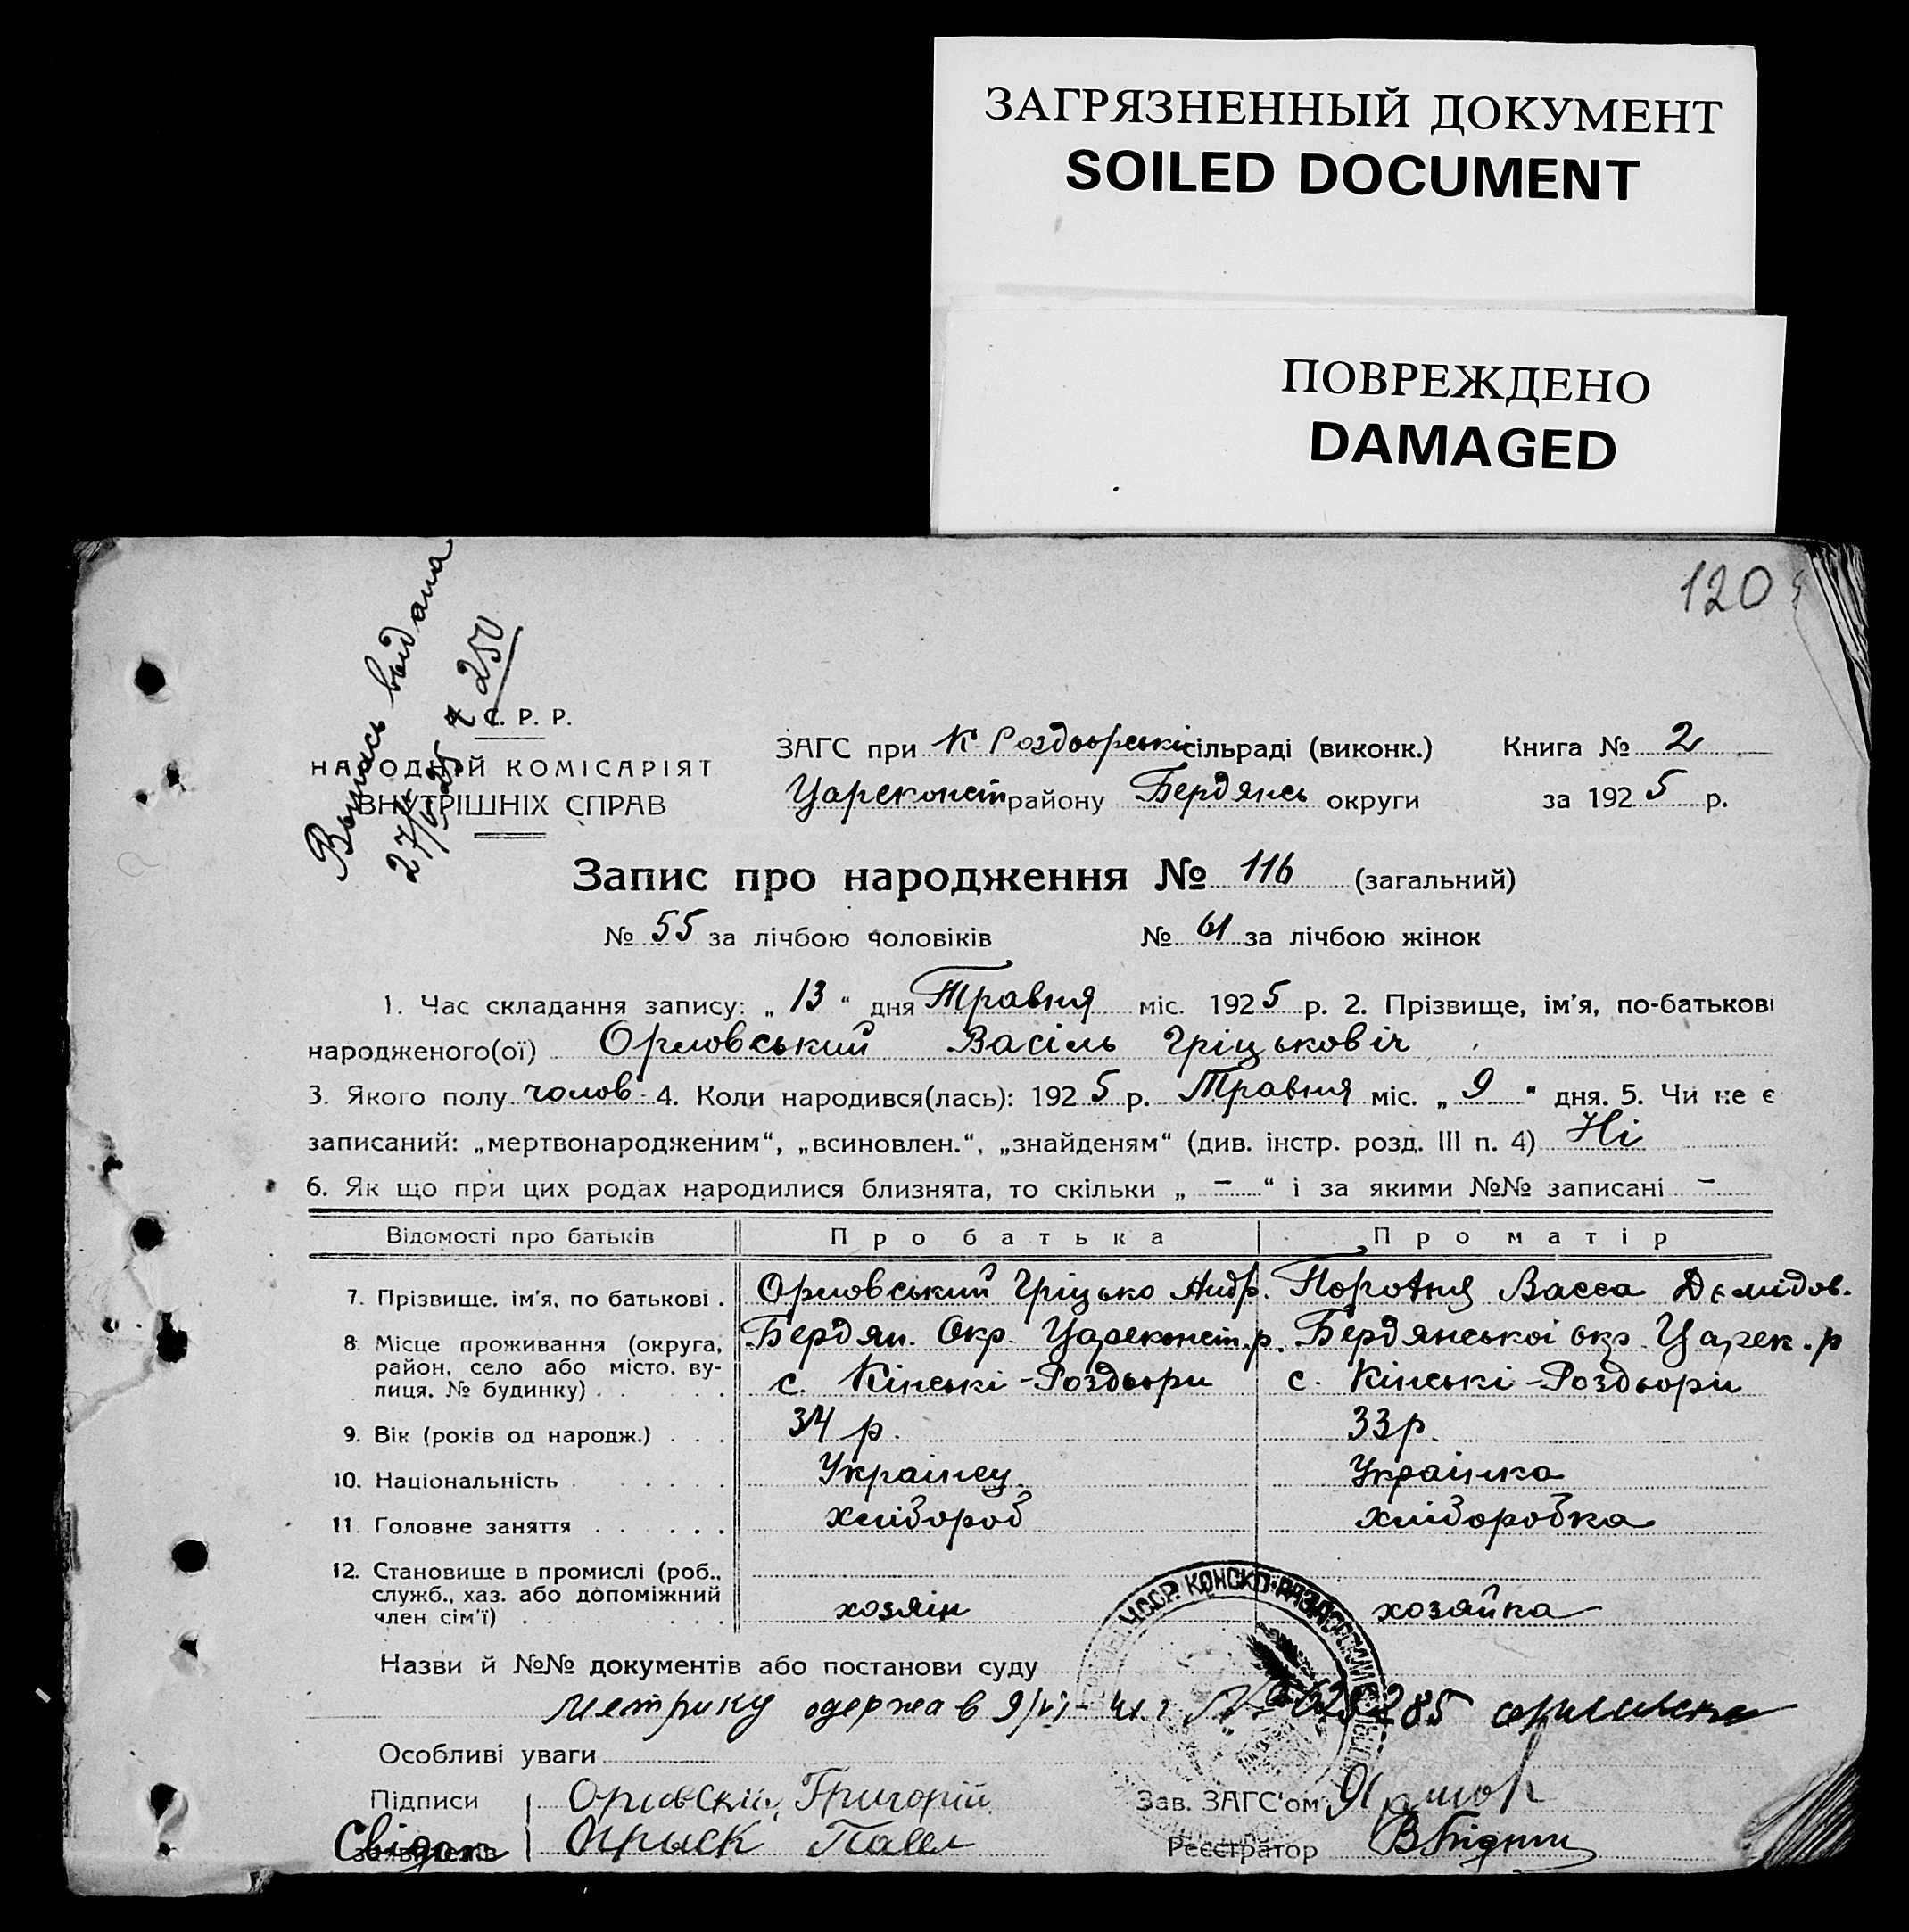 ЗАГРЯЗНЕННЫЙ ДОКУМЕНТ
SOILED DOCUMENT
ПОВРЕЖДЕНО
DAMAGED
120
Выпись выдана
250
С. Р. Р.
НАРОДНІЙ КОМІСАРІЯТ
ВНУТРІШНІХ СПРАВ
ЗАГС при К-Роздорській сільраді (виконк.) Книга № 2
Цареконст району Бердянсь округи за 1925 р.
Запис про народження № 116 (загальний)
№ 55 за лічбою чоловіків № 61 за лічбою жінок
1. Час складання запису: „ 13 “ дня Травня міс. 1925 р. 2. Прізвище, ім’я, по-батькові
народженого(ої) Орловський Васіль Гріцьковіч
3. Якого полу чолов 4. Коли народився(лась): 1925 р. Травня міс. „ 9 “ дня. 5. Чи не є
записаний: „мертвонародженим“, „всиновлен.“, „знайденям“ (див. інстр. розд. III п. 4) Ні
6. Як що при цих родах народилися близнята, то скільки „ – “ і за якими №№ записані –
Відомості про батьків Про батька Про матір
7. Прізвище, ім’я, по батькові . Орловський Гріцько Андр. Поротня Васса Демідов.
8. Місце проживання (округа, район, село або місто, вулиця, № будинку) . . Бердян. Окр. Цареконст. р. Бердянської окр. Царек. р
с. Кінські-Роздори с. Кінські-Роздори
9. Вік (років од народж.) . . . 34 р. 33 р.
10. Національність . . . . . Українец Українка
11. Головне заняття . . . . . . хлібороб хлiборобка
12. Становище в промислі (роб., служб., хаз. або допоміжний член сім’ї) . . . хозяін хозяйка
Назви й №№ документів або постанови суду
Метрику одержав 9/VI-41 г
Особливі уваги
Підписи Орловскій Григорій Зав. ЗАГС’ом
Свідки заявителів Павел Реєстратор